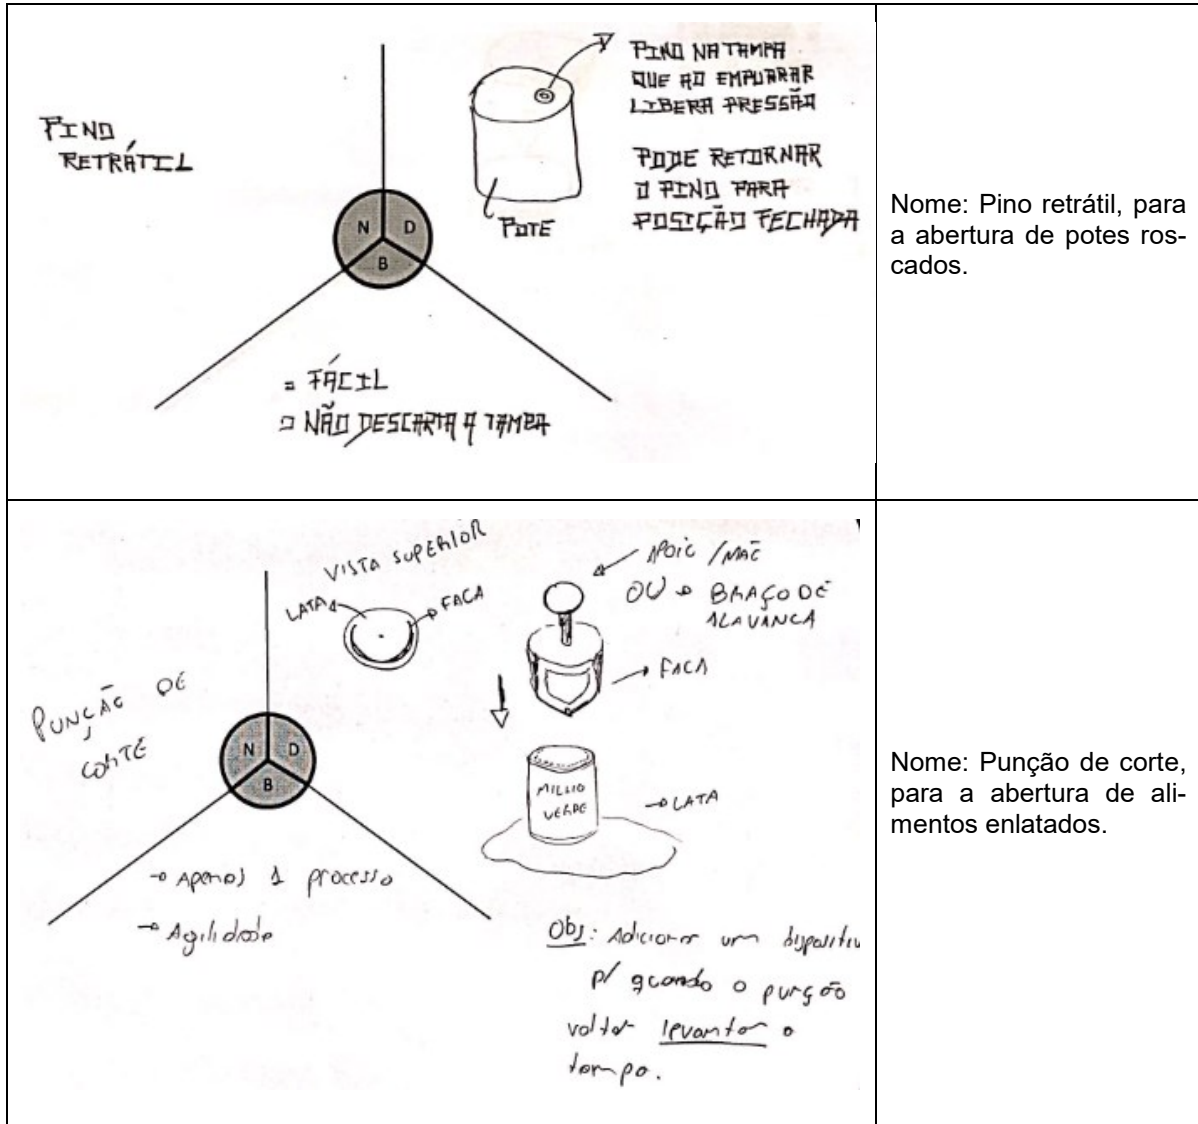 PINO
RETRÁTIL
PINO NA TAMPA
QUE AO EMPURRAR
LIBERA PRESSÃO
PODE RETORNAR
O PINO PARA
POSIÇÃO FECHADA
POTE
N D
B
FÁCIL
NÃO DESCARTA A TAMPA
Nome: Pino retrátil, para
a abertura de potes ros-
cados.
PUNÇÃO DE
CORTE
VISTA SUPERIOR
LATA
FACA
APOIO / MÃO
OU BRAÇO DE
ALAVANCA
FACA
MILHO
VERDE
LATA
N D
B
Apenas 1 processo
Agilidade
Obs: Adicionar um dispositiv
p/ quando o punção
voltar levantar a
tampa.
Nome: Punção de corte,
para a abertura de ali-
mentos enlatados.